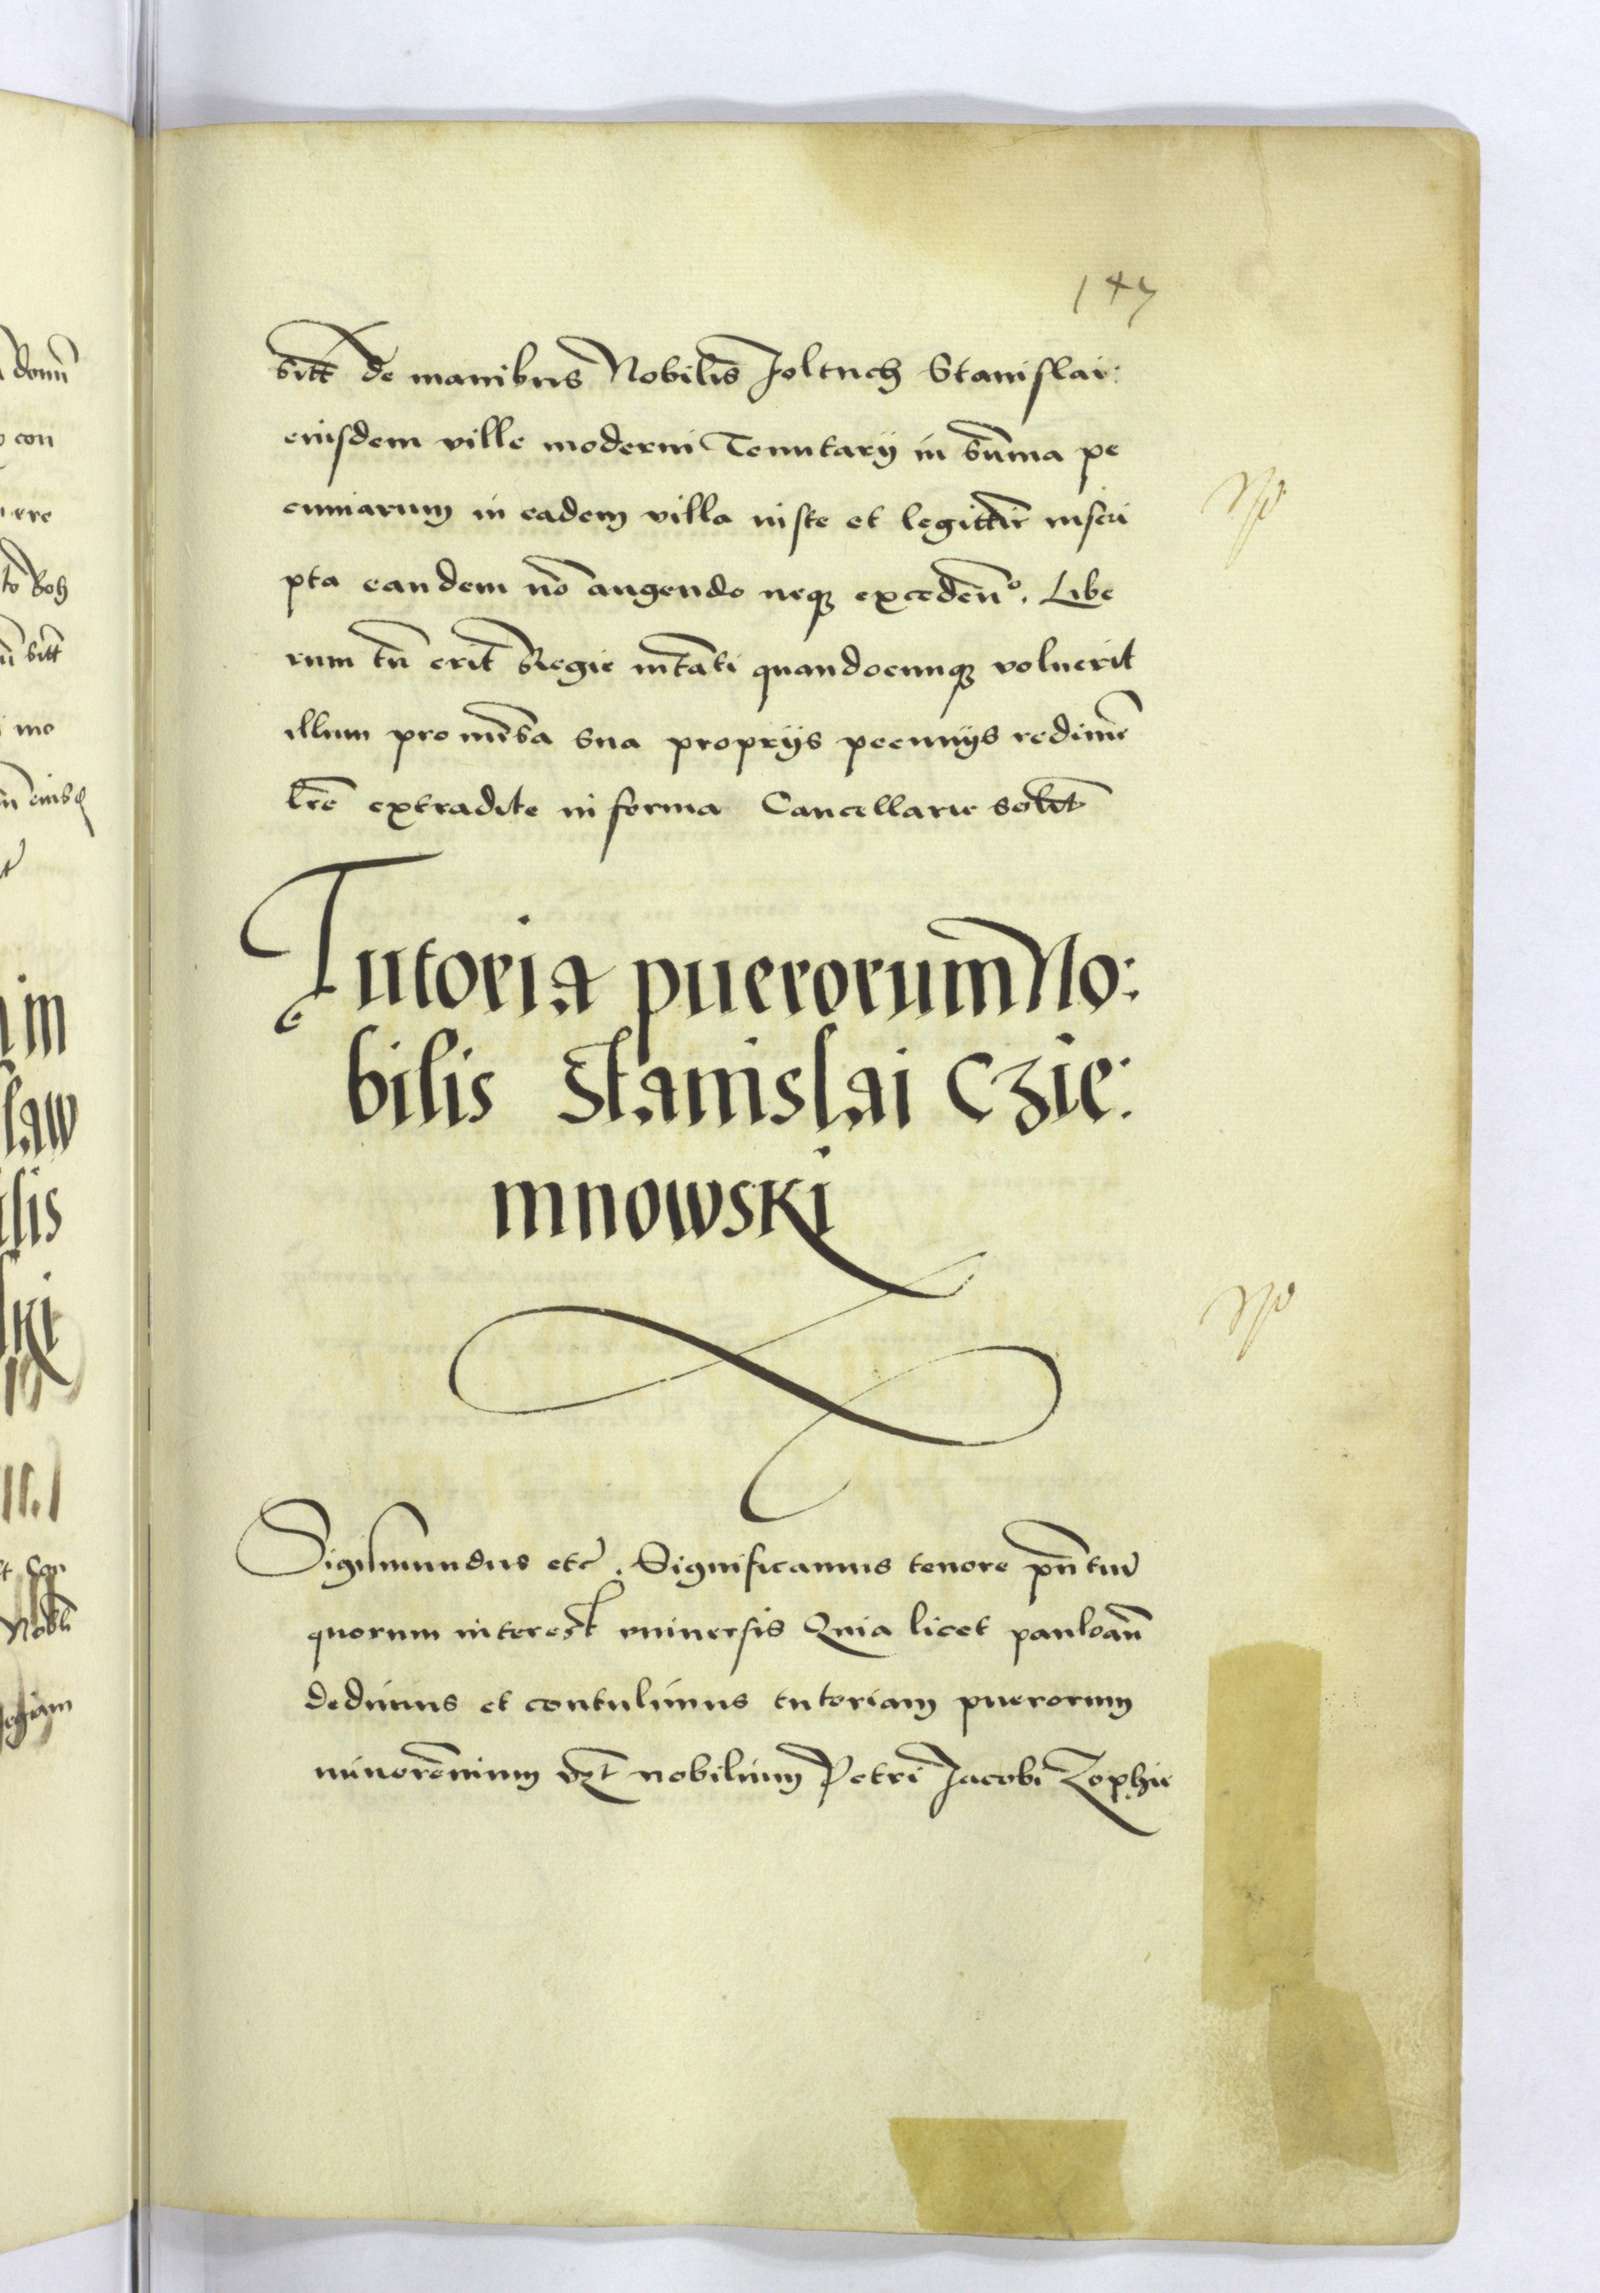 147
sitt de manibus Nobilis Joltuch Stanislai:
eiusdem ville moderni Tenutarij in Sum̄a pe
cuniarum in eadem villa iuste et legittīe inscri
pta eandem nō augendo neqꝫ excedenᵒ. Libe
rum tn̄ erit Regie mtāti quandocunqꝫ voluerit
illum pro mēsa sua proprijs pecunijs redimē
Lrē extradite in forma Cancellarie solit
Tutoria puerorum No:
bilis Stanislai Czie:
mnowski
Sigismundus etc̄. Significamus tenore pn̄tiū
quorum interest vniuersis Quia licet pauloan̄
dedimus et contulimus tutoriam puerorum
minorēnium vꝫt nobilium Petri Jacobi Zophie